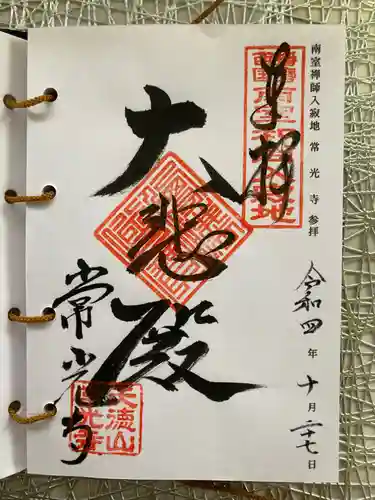 南室禅師入寂地 常光寺参拝
令和四年十月二十七日
奉拝
大悲殿
常光寺
天徳山
常光寺